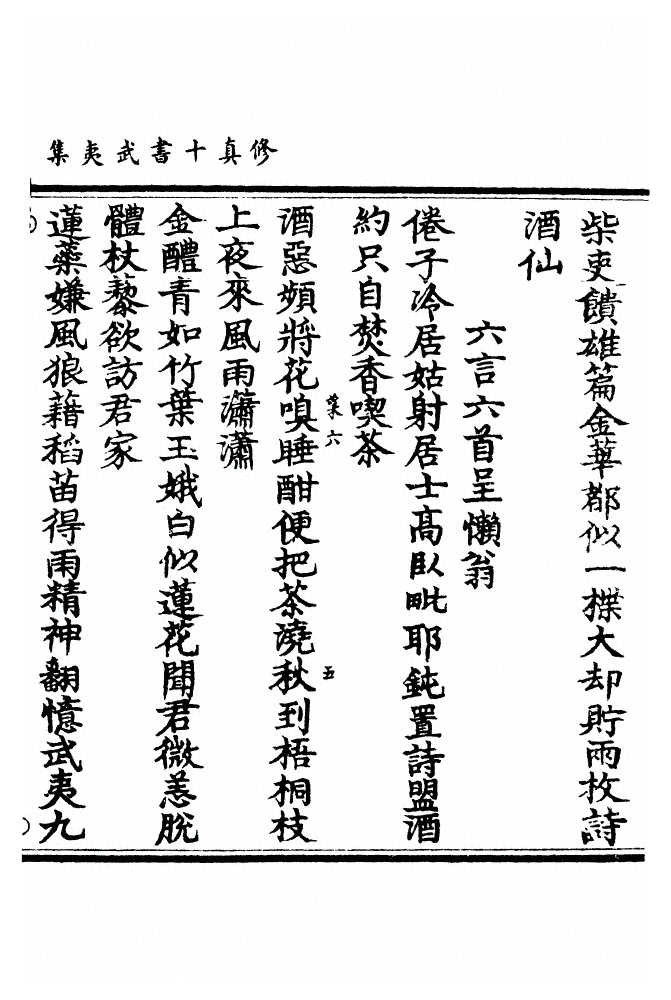 修真十書武夷集
柴吏饋雄篇金華都似一楪大却貯兩枚詩
酒仙
六言六首呈懶翁
倦子冷居姑射居士高臥毗耶鈍置詩盟酒
約只自焚香喫茶
酒惡頻將花嗅睡酣便把茶澆秋到梧桐枝
葉六
五
上夜來風雨瀟瀟
金醴青如竹葉玉娥白似蓮花聞君微恙脫
體杖藜欲訪君家
蓮藥嫌風狼藉稻苗得雨精神翻憶武夷九